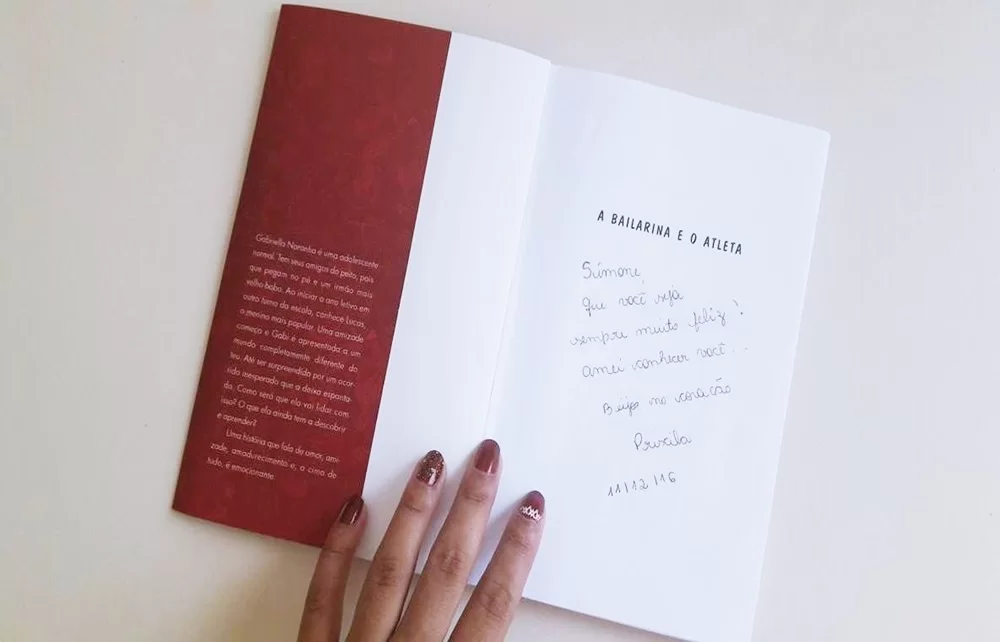 Gabriella Naranha é uma adolescente
normal. Tem seus amigos do peito, pais
que pegam no pé e um irmão mais
velho babo. Ao iniciar o ano letivo em
outro turno da escola, conhece Lucas,
o menino mais popular. Uma amizade
começa e Gabi é apresentada a um
mundo completamente diferente do
seu. Até ser surpreendida por um acon-
tido inesperado que a deixa espanta-
da. Como será que ela vai lidar com
isso? O que ela ainda tem a descobrir
e aprender?
Uma história que fala de amor, ami-
zade, amadurecimento e, a cima de
tudo, é emocionante.
A BAILARINA E O ATLETA
Simone,
que você seja
sempre muito feliz!
amei conhecer você...
Beijo no coração
Priscila
11/12/16